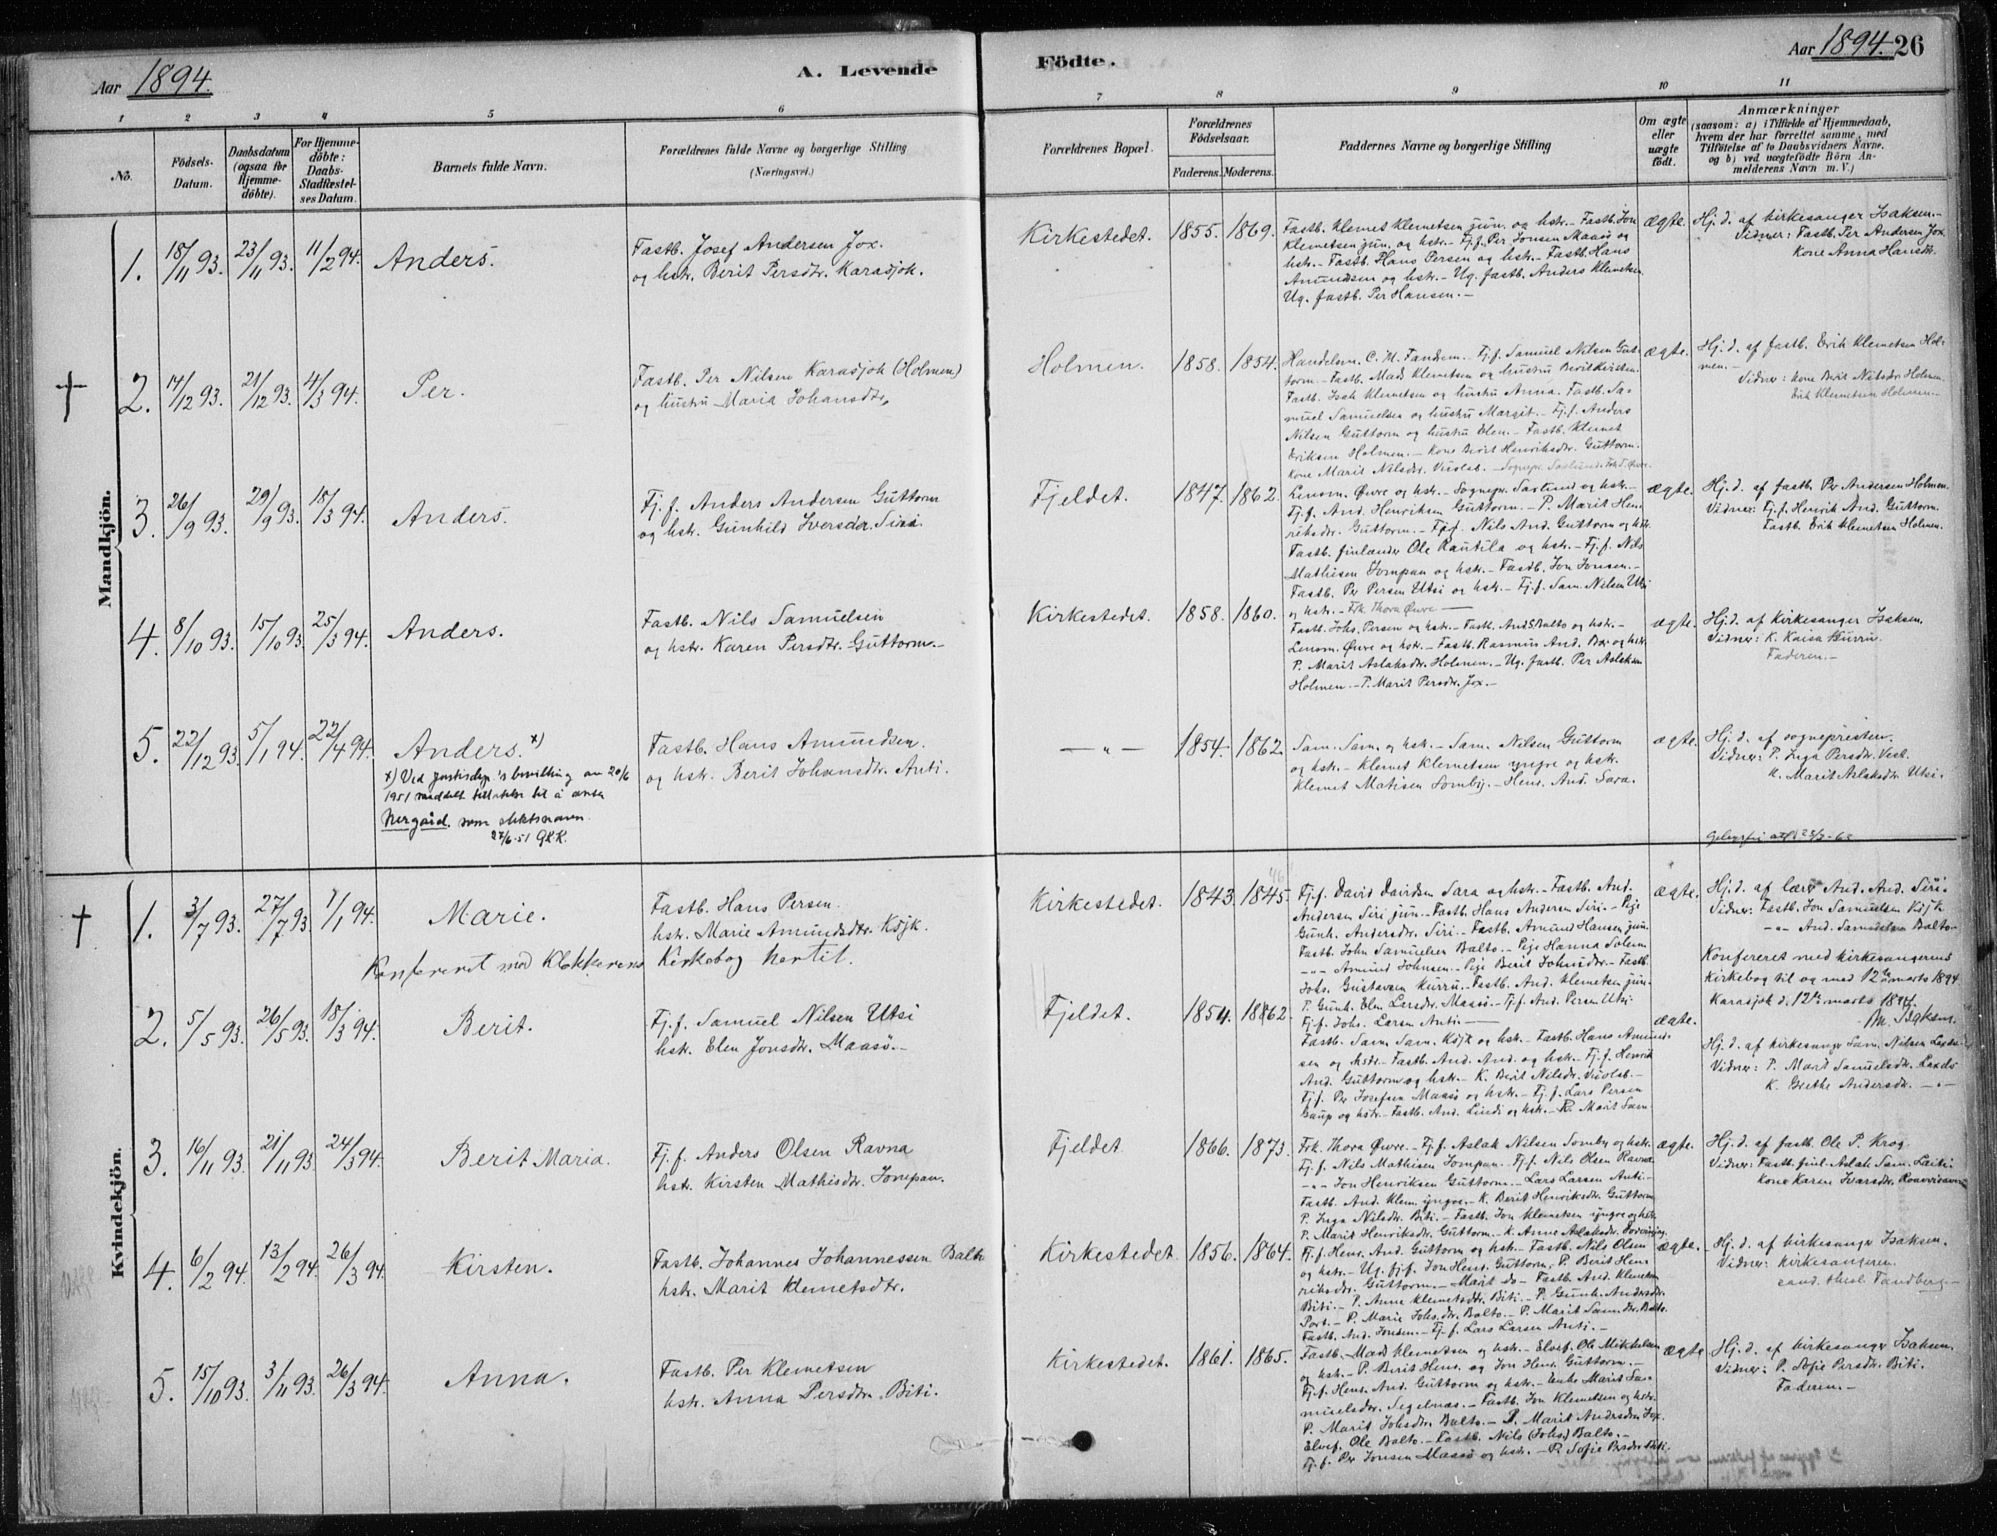 Aar 1894.
A. Levende
Födte.
Aar 1894. 26
1 2 3 4 5 6 7 8 9 10 11
No.
Födsels-
Datum.
Daabsdatum
(ogsaa for
Hjemme-
döbte).
For Hjemme-
döbte:
Daabs-
Stadfæstel-
ses Datum.
Barnets fulde Navn.
Forældrenes fulde Navne og borgerlige Stilling
(Næringsvei.)
Forældrenes Bopæl.
Forældrenes
Födselsaar.
Faderens. Moderens.
Faddernes Navne og borgerlige Stilling
Om ægte
eller
uægte
födt.
Anmærkninger
(saasom: a) i Tilfælde af Hjemmedaab,
hvem der har forrettet samme, med
Tilföielse af to Daabsvidners Navne,
og b) ved uægtefödte Börn An-
melderens Navn m. V.)
Mandkjön.
1. 18/11 93. 23/11 93. 11/2 94. Anders.
Fastb. Josef Andersen Jox.
og hstr. Berit Persdtr. Karasjok.
Kirkestedet. 1855. 1869.
Fastb. Klemet Klemetsen jun. og hstr. – Fastb. Jon
Klemetsen jun. og hstr. – Fj.f. Per Jonsen Maasø og
hstr. – Fastb. Hans Persen og hstr. – Fastb. Hans
Amundsen og hstr. – Ug. fastb. Anders Klemetsen
Ug. fastb. Per Hansen. –
ægte.
Hj. d. af kirkesanger Isaksen. –
Vidner: Fastb. Per Andersen Jox
Kone Anna Hansdtr.
† 2. 14/12 93. 21/12 93. 4/3 94. Per.
Fastb. Per Nilsen Karasjok (Holmen)
og hustru Maria Johansdtr.
Holmen. 1858. 1854.
Handelsm. C. M. Fandrem. – Fj.f. Samuel Nilsen Gut-
torm. – Fastb. Mads Klemetsen og hustru Berit Kirsten.
Fastb. Isak Klemetsen og hustru Anna. Fastb. Sa-
muel Samuelsen og hustru Margit. – Fj.f. Anders
Nilsen Guttorm og hustru Elen. – Fastb. Klemet
Eriksen Holmen. – Kone Berit Henriksdtr. Guttorm.
Kone Marit Nilsdtr. Vuolab. –
ægte.
Hj. d. af fastb. Erik Klemetsen Hol-
men. –
Vidner: Kone Berit Nilsdtr Holmen
Erik Klemetsen Holmen. –
3. 26/9 93. 29/9 93. 18/3 94. Anders.
Fj. f. Anders Andersen Guttorm
og hstr. Gunhild Iversdtr. Siri.
Fjeldet. 1847. 1862.
Lensm. Øwre og hstr. – Sognepr. Saxlund og hstr. –
Fj. f. And. Henriksen Guttorm. – P. Marit Hen-
riksdtr. Guttorm. – Fj.f. Nils And. Guttorm og hstr.
Fastb. finlænder Ole Rautila og hstr. – Fj. f. Nils
Mathisen Jompan og hstr. – Fastb. Jon Jonsen. –
Fastb. Per Persen Utsi og hstr. – Fj. f. Sam. Nilsen Utsi
og hstr. – Frk. Thora Øwre –
ægte.
Hj. d. af fastb. Per Andersen Holmen.
Vidner: Fj. f. Henrik And. Guttorm.
Fastb. Erik Klemetsen Holmen.
4. 8/10 93. 15/10 93. 25/3 94. Anders.
Fastb. Nils Samuelsen
og hstr. Karen Persdtr. Guttorm. –
Kirkestedet. 1858. 1860.
Fastb. Johs. Persen og hstr. – Fastb. And. Balto og hstr. –
Lensm. Øwre og hstr. – Fastb. Rasmus And. og hstr.
P. Marit Aslaksdtr. Holmen. – Ug. fastb. Per Aslaksen
Holmen. – P. Marit Persdtr. Jox. –
ægte.
Hj. d. af kirkesanger Isaksen.
Vidner: K. Kaisa Kurru.
Faderen. –
5. 22/12 93. 5/1 94. 22/4 94. Anders. x)
x) Ved justisdep's bevilling av 20/6
1951 meddelt tillatelse til å anta
Nergård som slektsnavn.
27/6-51 GKK.
Fastb. Hans Amundsen.
og hstr. Berit Johansdtr. Anti.
– " – 1854. 1862.
Sam. Sam. og hstr. – Sam. Nilsen Guttorm
og hstr. – Klemet Klemetsen yngre og hstr.
Klemet Matisen Somby. – Henr. And. Sara.
ægte.
Hj. d. af sognepresten.
Vidner: P. Inga Persdtr.
K. Marit Aslaksdtr Utsi.
Kvindekjön.
† 1. 3/7 93. 27/7 93. 7/1 94. Marie.
Fastb. Hans Persen.
hstr. Marie Amundsdtr. Ksjk.
Konfereret med Klokkerens Kirkebog hertil.
Kirkestedet. 1843. 1845. 46
Fj. f. David Davidsen Sara og hstr. – Fastb. And.
Andersen Siri jun. – Fastb. Hans Andersen Siri. – Pige
Gunh. Andersdtr. Siri. – Fastb. Amund Hansen jun.
Fastb. John Samuelsen Balto. – Pige Hanna Solem
– " – Amund Johnsen. – Pige Berit Johnsdtr. – Fastb.
Johs. Gustavsen Kurru. – Fastb. And. Klemetsen jun. –
ægte.
Hj. d. af lærer And. And. Siri. –
Vidner: Fastb. Jon Samuelsen Ksjk
– " – And. Samuelsen Balto. –
Konfereret med kirkesangerens
kirkebog til og med 12te marts 1894
Karasjok d. 12te marts 1894.
M. Isaksen.
2. 5/5 93. 26/5 93. 18/3 94. Berit.
Fj. f. Samuel Nilsen Utsi
hstr. Elen Jonsdtr. Maasø. –
Fjeldet. 1854. 18862.
P. Gunh. Elen Larsdtr. Maasø. – Fj. f. And. Persen Utsi. –
Fj. f. Johs. Larsen Anti. –
Fastb. Sam. Sam. Ksjk og hstr. – Fastb. Hans Amund-
sen og hstr. – Fastb. And. And. og hstr. – Fj. f. Henrik
And. Guttorm og hstr. – K. Berit Nilsdtr. Vuolab. –
Fj. f. Per Josefsen Maasø og hstr. – Fj. f. Lars Persen
Gaup og hstr. – Fastb. And. Lindi og hstr. – P. Marit Sam
ægte.
Hj. d. af kirkesanger Sam. Nilsen
Vidner: P. Marit Samuelsdtr.
K. Grethe Andersdtr. – " –
3. 16/11 93. 21/11 93. 24/3 94. Berit Maria.
Fj. f. Anders Olsen Ravna
hstr. Kirsten Mathisdtr. Jompan.
Fjeldet 1866. 1873.
Frk. Thora Øwre. – Fj. f. Aslak Nilsen Somby og hstr.
Fj. f. Nils Mathisen Jompan. – Fj. f. Nils Olsen Ravna
– " – Jon Henriksen Guttorm. – Lars Larsen Anti. –
Fastb. And. Klem. yngre. – K. Berit Henriksdtr. Guttorm
P. Inga Nilsdtr. Biti. – Fastb. Jon Klemetsen yngre og hstr.
P. Marit Henriksdtr. Guttorm. – K. Anne Aslaksdtr.
ægte.
Hj. d. af fastb. Ole P. Krog.
Vidner: Fastb. finl. Aslak Sam. Laiti
Kone Karen Ivarsdtr.
4. 6/2 94. 13/2 94. 26/3 94. Kirsten.
Fastb. Johannes Johannessen Balto
hstr. Marit Klemetsdtr.
Kirkestedet 1856. 1864.
Fj. f. Henr. And. Guttorm og hstr. – Fastb. Nils Olsen
og hstr. – Ug. fj. f. Jon Henr. Guttorm, P. Berit Hen-
riksdtr. Guttorm. – Marit do – Fastb. And. Klemetsen
Biti. – P. Anne Klemetsdtr. Biti. – P. Gunh. Andersdtr.
Port. – P. Marie Johs.dtr. Balto. – P. Marit Sam.dtr. Balto.
Fastb. And. Jonsen. – Fj. f. Lars Larsen Anti. –
ægte.
Hj. d. af kirkesanger Isaksen.
Vidner: Kirkesangeren.
cand. theol. Tandberg. –
5. 15/10 93. 3/11 93. 26/3 94. Anna.
Fastb. Per Klemetsen
hstr. Anna Persdtr. Biti.
Kirkestedet. 1861. 1865.
Fastb. Mads Klemetsen og hstr. – Elvef. Ole Mikkelsen
og hstr. – P. Berit Henr. og Jon Henr. Guttorm. –
Fj. f. Henr. And. Guttorm og hstr. – Enke Marit Sa-
muelsdtr. Segelnæs. – Fastb. Jon Klemetsen og hstr.
P. Marit Johsdtr. Balto. – P. Marit Andersdtr. Jox.
Elvef. Ole Balto. – Fastb. Nils (Johs.) Balto. –
Fj. f. Per Jonsen Maasø og hstr. – P. Sofie Persdtr. Biti.
ægte
Hj. d. af kirkesanger Isaksen.
Vidner: P. Sofie Persdtr. Biti.
Faderen. –